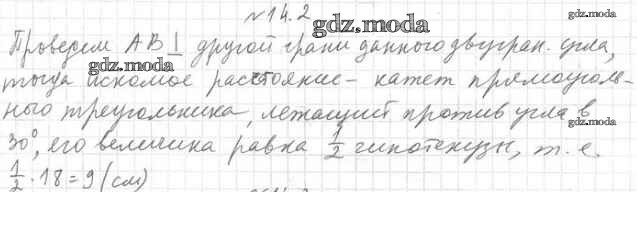 №14.2
gdz.moda
Проведем AB ⊥ другой грани данного двугран. угла,
gdz.moda
тогда искомое расстояние – катет прямоуголь-
ного треугольника, лежащий против угла в
gdz.moda
30°, его величина равна 1/2 гипотенузы, т. е.
1/2 · 18 = 9 (см)